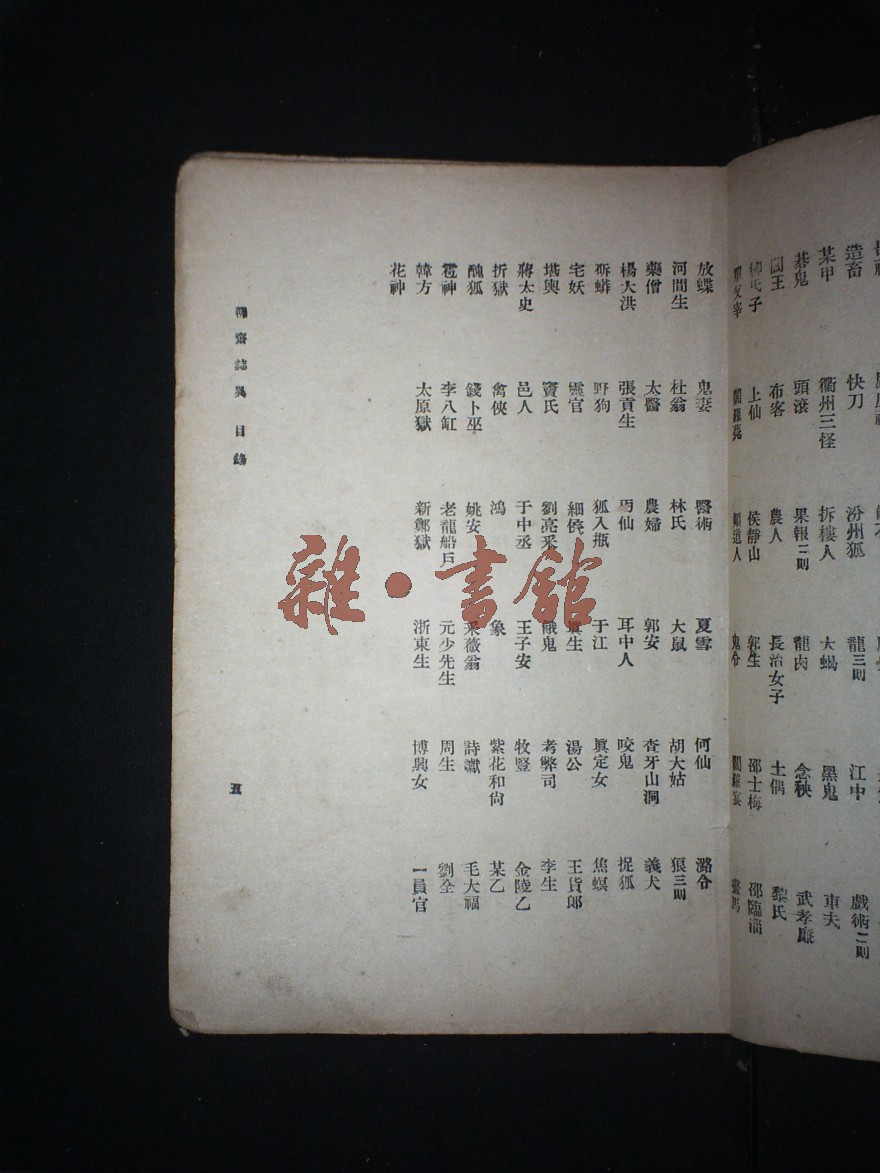 造畜 快刀 汾州狐 龍三則 江中 戲術二則
某甲 衢州三怪 拆樓人 大蝎 黑鬼 車夫
碁鬼 頭滾 果報二則 龍肉 念秧 武孝廉
閻王 布客 農人 長治女子 土偶 黎氏
柳氏子 上仙 侯靜山 郭生 邵士梅 邵臨淄
單父宰 閻羅薨 顛道人 鬼令 閻羅宴 畫馬
放蝶 鬼妻 醫術 夏雪 何仙 潞令
河間生 杜翁 林氏 大鼠 胡大姑 狼三則
藥僧 太醫 農婦 郭安 查牙山洞 義犬
楊大洪 張貢生 丐仙 耳中人 咬鬼 捉狐
斫蟒 野狗 狐入瓶 于江 眞定女 焦螟
宅妖 靈官 細侯 眞生 湯公 王貨郎
堪輿 竇氏 劉亮采 餓鬼 考弊司 李生
蔣太史 邑人 于中丞 王子安 牧豎 金陵乙
折獄 禽俠 鴻 象 紫花和尙 某乙
醜狐 錢卜巫 姚安 采薇翁 詩讞 毛大福
雹神 李八缸 老龍船戶 元少先生 周生 劉全
韓方 太原獄 新鄭獄 浙東生 博興女 一員官
花神
聊齋誌異 目錄 五
雜·書館